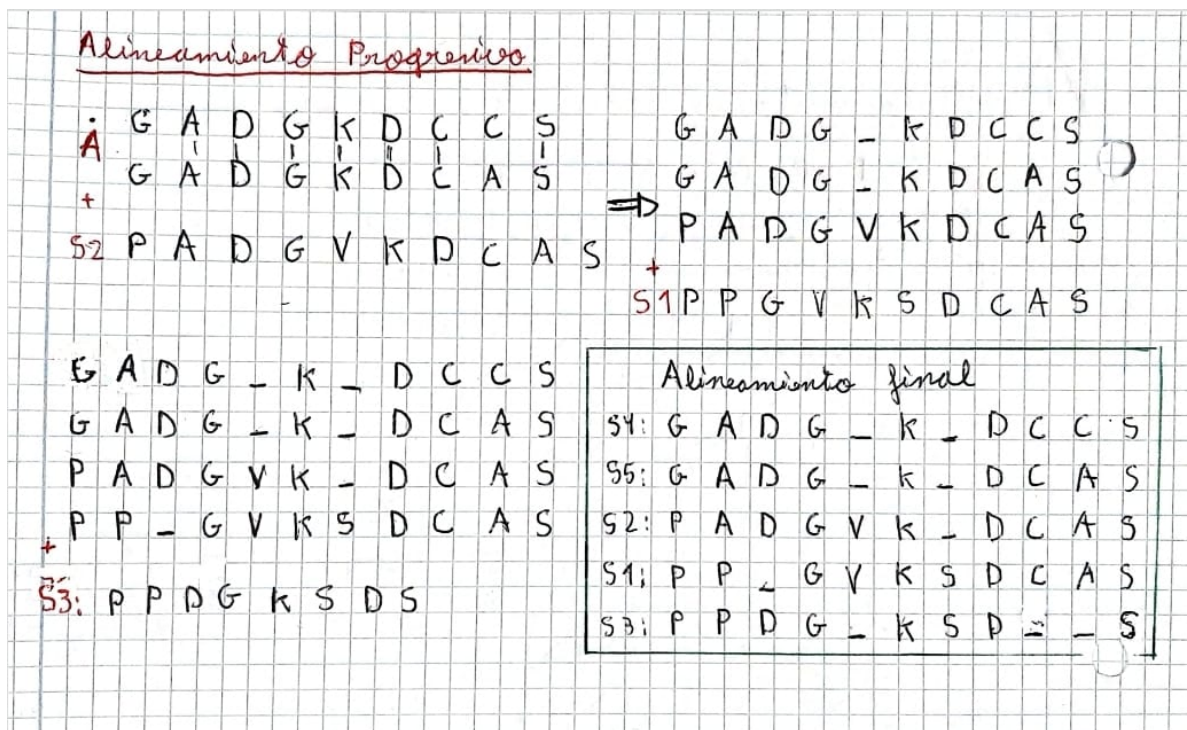 Alineamiento Progresivo
Ȧ G A D G K D C C S
G A D G K D C A S
+
S2 P A D G V K D C A S
⇒
G A D G _ K D C C S
G A D G _ K D C A S
P A D G V K D C A S
+
S1 P P G V K S D C A S
G A D G _ K _ D C C S
G A D G _ K _ D C A S
P A D G V K _ D C A S
P P _ G V K S D C A S
+
S3: P P D G K S D S
Alineamiento final
S4: G A D G _ K _ D C C S
S5: G A D G _ K _ D C A S
S2: P A D G V K _ D C A S
S1: P P _ G V K S D C A S
S3: P P D G _ K S D _ _ S